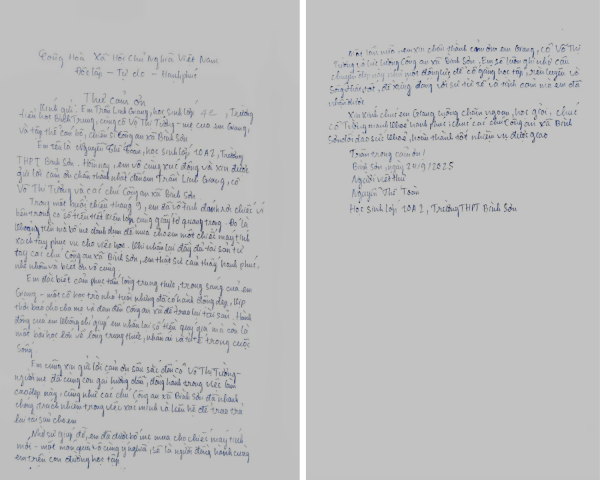 Cộng Hòa Xã Hội Chủ Nghĩa Việt Nam
Độc lập - Tự do - Hạnh phúc
Thư cảm ơn
Kính gửi: Em Trần Linh Giang, học sinh lớp 4E, Trường
tiểu học Bình Trung, cùng cô Võ Thị Tường - mẹ của em Giang,
và tập thể cán bộ, chiến sĩ Công an xã Bình Sơn
Em tên là Nguyễn Thế Toàn, học sinh lớp 10A2, Trường
THPT Bình Sơn. Hôm nay, em vô cùng xúc động và xin được
gửi lời cảm ơn chân thành nhất đến em Trần Linh Giang, cô
Võ Thị Tường và các chú Công an xã Bình Sơn
Trong một buổi chiều tháng 9, em đã vô tình đánh rơi chiếc ví
bên trong có số tiền lớn cùng giấy tờ quan trọng. Đó là
khoảng tiền mà bố mẹ dành dụm để mua cho em một chiếc máy tính
xách tay phục vụ cho việc học. Khi nhận lại đầy đủ tài sản từ
tay các chú Công an xã Bình Sơn, em thật sự cảm thấy hạnh phúc,
nhẹ nhõm và biết ơn vô cùng.
Em đặc biệt cảm phục tấm lòng trung thực, trong sáng của em
Giang - một cô học trò nhỏ tuổi nhưng đã có hành động đẹp, kịp
thời báo cho cha mẹ và đem đến Công an xã để trao lại tài sản. Hành
động của em không chỉ giúp em nhận lại số tiền quý giá mà còn là
một bài học lớn về lòng trung thực, nhân ái và tử tế trong cuộc
sống
Em cũng xin gửi lời cảm ơn sâu sắc đến cô Võ Thị Tường -
người mẹ đã cùng con gái hướng dẫn, đồng hành trong việc làm
cao đẹp này, cũng như các chú Công an xã Bình Sơn đã nhanh
chóng trách nhiệm trong việc xác minh và liên hệ để trao trả
lại tài sản cho em
Nhờ sự giúp đỡ, em đã được bố mẹ mua cho chiếc máy tính
mới - một món quà vô cùng ý nghĩa, sẽ là người đồng hành cùng
em trên con đường học tập
Một lần nữa, em xin chân thành cảm ơn em Giang, cô Võ Thị
Tường và lực lượng Công an xã Bình Sơn. Em sẽ luôn ghi nhớ câu
chuyện đẹp này như một động lực để cố gắng học tập, rèn luyện và
sống thật tốt, để xứng đáng với sự tử tế và tình cảm mà em đã
nhận được
Xin kính chúc em Giang luôn chăm ngoan, học giỏi, chúc
cô Tường mạnh khoẻ, hạnh phúc, chúc các chú Công an xã Bình
Sơn dồi dào sức khoẻ, hoàn thành tốt nhiệm vụ được giao
Trân trọng cảm ơn!
Bình Sơn, ngày 20/9/2025
Người viết thư
Nguyễn Thế Toàn
Học sinh lớp 10A2, Trường THPT Bình Sơn